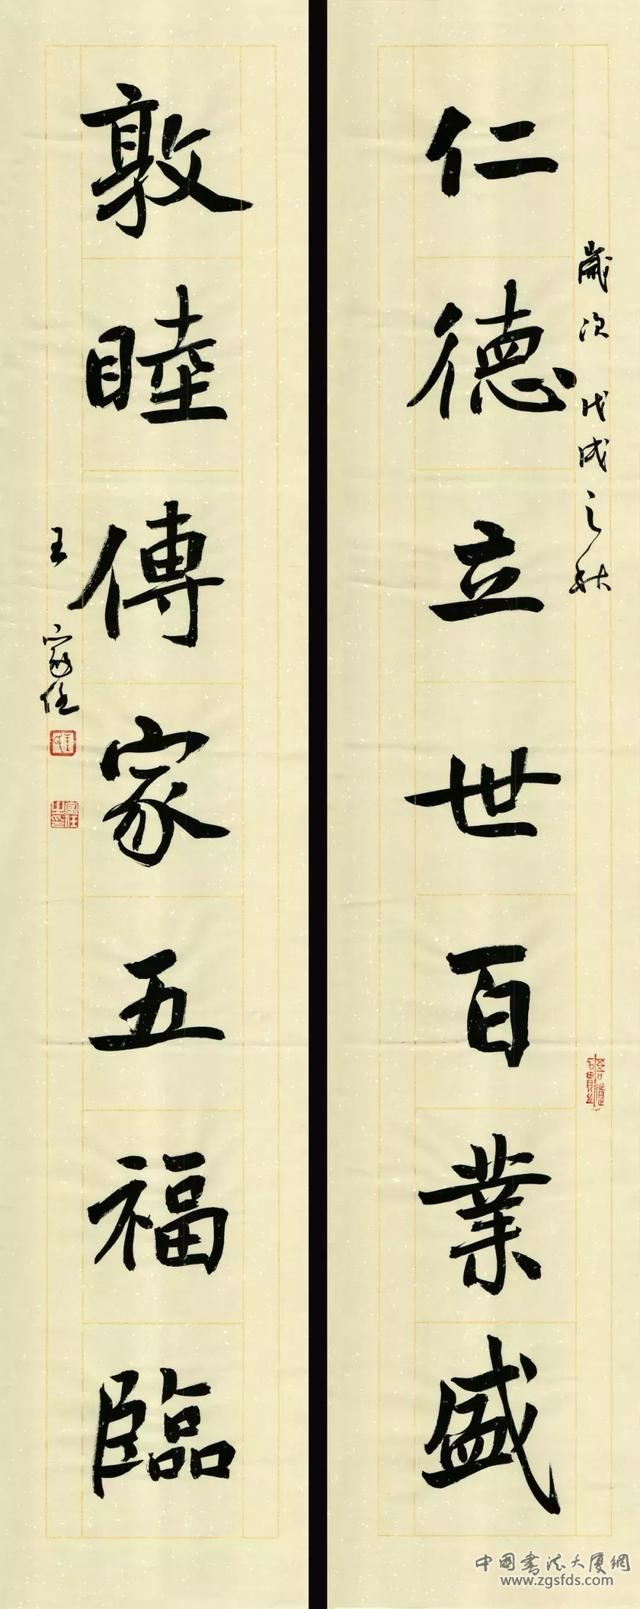 仁德立世百業盛
歲次戊戌之秋
敦睦傳家五福臨
王家任
中国书法大厦網
www.zgsfds.com